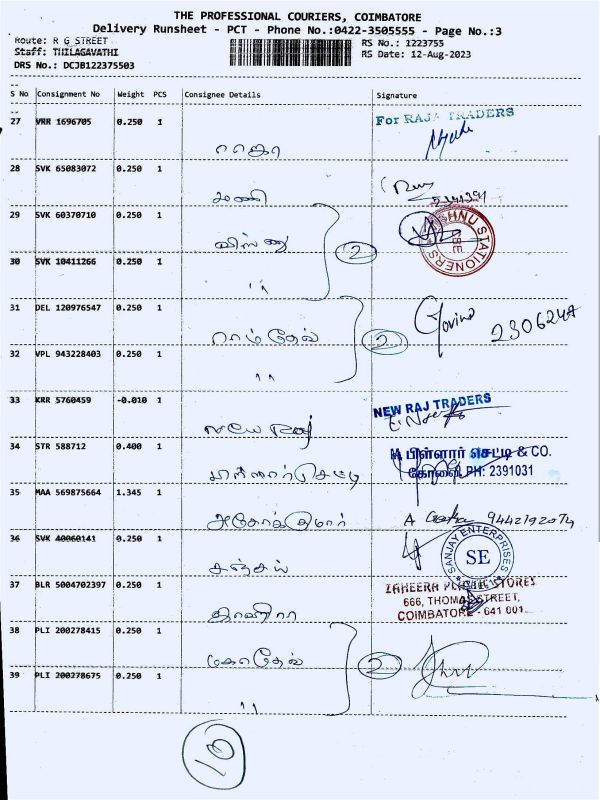 THE PROFESSIONAL COURIERS, COIMBATORE
Delivery Runsheet - PCT - Phone No.:0422-3505555 - Page No.:3
Route: R G STREET
RS No.: 1223755
Staff: THILAGAVATHI
RS Date: 12-Aug-2023
DRS No.: DCJB122375503
S No Consignment No Weight PCS Consignee Details Signature
27 VRR 1696705 0.250 1
For RAJA TRADERS
ராஜா
28 SVK 65083072 0.250 1
மணி
29 SVK 60370710 0.250 1
VISHNU STATIONERS CBE
விஸ்ணு
2
30 SVK 10411266 0.250 1
"
31 DEL 120976547 0.250 1
Govind 2306247
ராம்தேவ்
2
32 VPL 943228403 0.250 1
"
33 KRR 5760459 -0.010 1
NEW RAJ TRADERS
நியூ ராஜ்
34 STR 588712 0.400 1
பிள்ளார் செட்டி & CO.
கோவை. PH: 2391031
பிள்ளார் செட்டி
35 MAA 569875664 1.345 1
அசோக்குமார்
A 9442192074
36 SVK 40060141 0.250 1
SANJAY ENTERPRISES
SE
சஞ்சய்
37 BLR 5004702397 0.250 1
ZAHEERA PLASTIC STORES
666, THOMAS STREET,
COIMBATORE - 641 001
38 PLI 200278415 0.250 1
மகாதேவ்
2
39 PLI 200278675 0.250 1
"
10